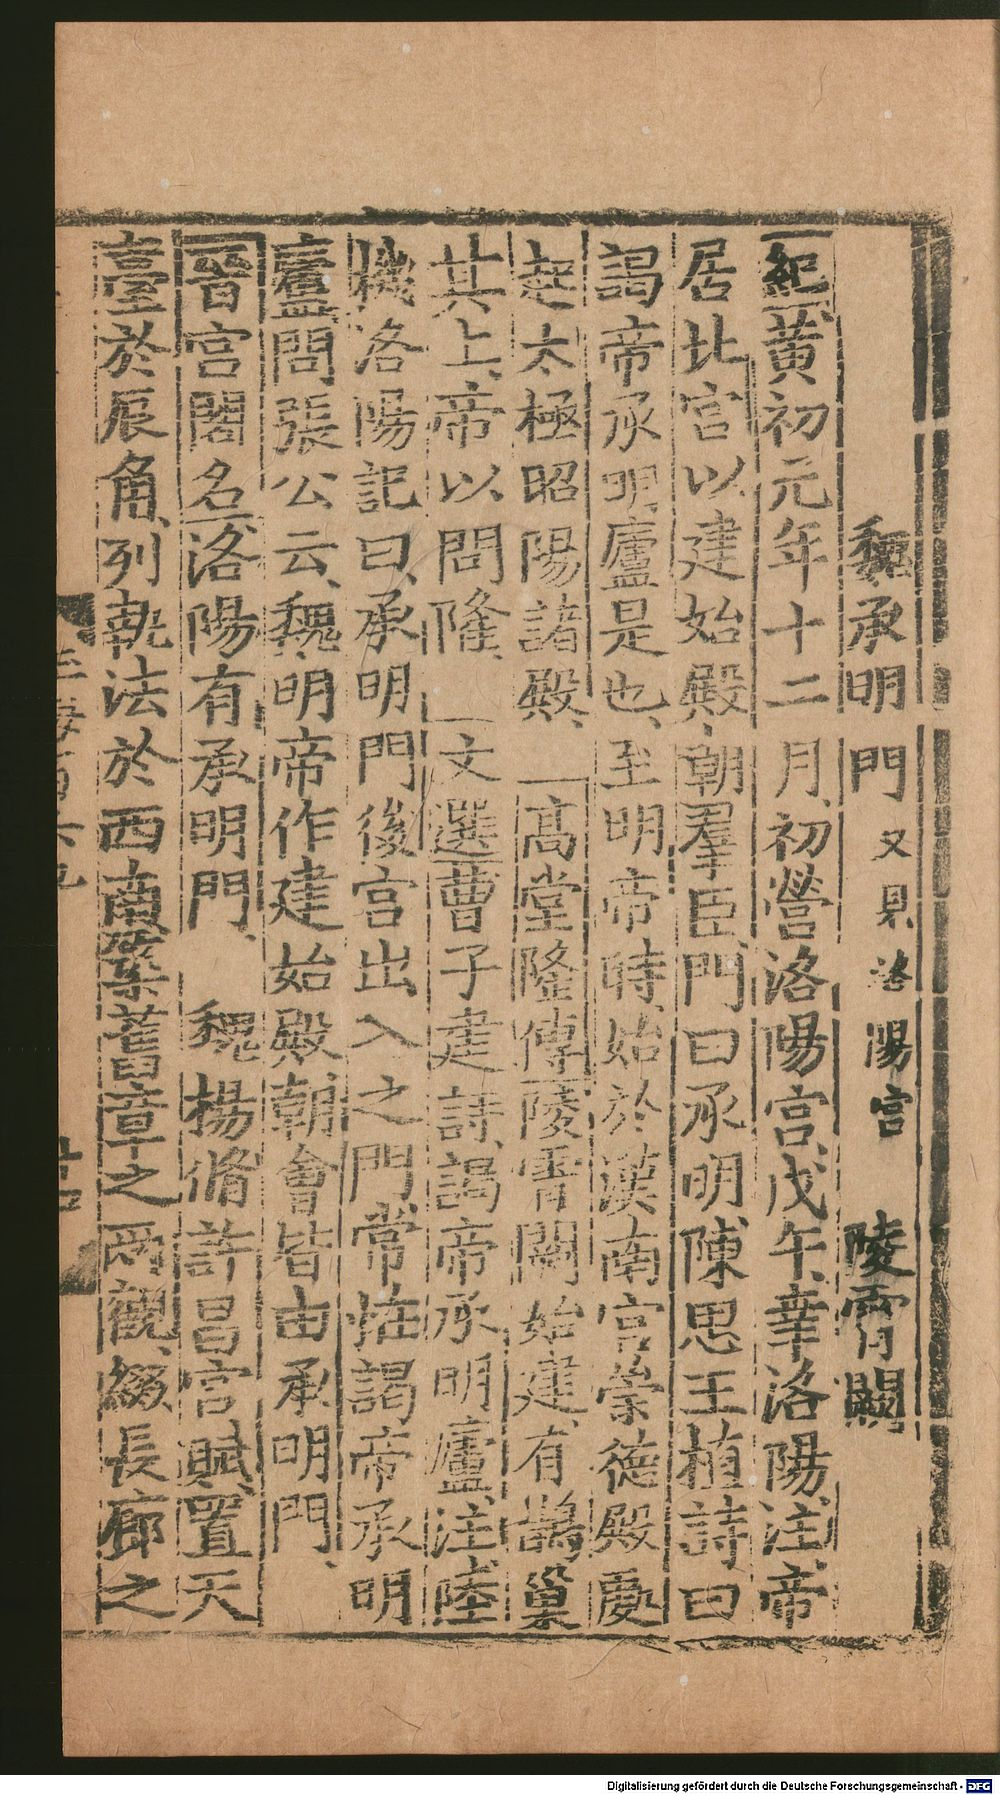 魏承明門又見洛陽宮 陵霄闕
紀黃初元年十二月初營洛陽宮戊午幸洛陽注帝
居北宮以建始殿朝羣臣門曰承明陳思王植詩曰
謁帝承明廬是也至明帝時始於漢南宮崇德殿處
起太極昭陽諸殿 高堂隆傳陵霄闕始建有鵲巢
其上帝以問隆 文選曹子建詩謁帝承明廬注陸
機洛陽記曰承明門後宮出入之門常怪謁帝承明
廬問張公云魏明帝作建始殿朝會皆由承明門
晉宮閣名洛陽有承明門 魏楊脩許昌宮賦置天
臺於辰角列執法於西南築舊章之兩觀綴長廊之
玉海百六九
Digitalisierung gefördert durch die Deutsche Forschungsgemeinschaft - DFG